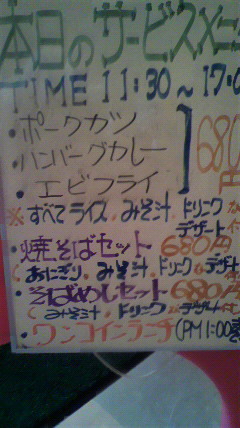 本日のサービスメニ
TIME 11:30~17:0
・ポークカツ
・ハンバーグカレー
・エビフライ
680円
※すべてライス、みそ汁、ドリンク
デザート
・焼そばセット 680円
(おにぎり、みそ汁、ドリンク、デザ
・そばめしセット 680円
(みそ汁、ドリンク、デザート
・ワンコインランチ (PM1:00